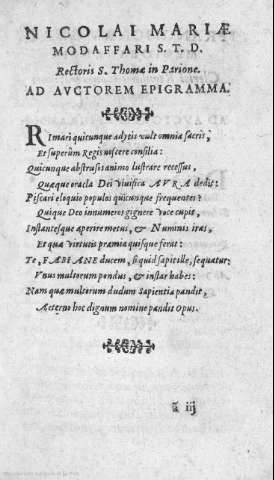 NICOLAI MARIÆ
MODAFFARI S. T. D.
Rectoris S. Thomæ in Parione.
AD AVCTOREM EPIGRAMMA.
RImari quicunque adytis vult omnia sacris,
Et superûm Regis viscere consilia:
Quicunque abstrusis animo lustrare recessus,
Quæque oracla Dei viuifica AVRA dedit:
Piscari eloquio populos quicunque frequentes?
Quique Deo innumeros gignere voce cupit,
Instantesque aperire metus, & Numinis iras,
Et quæ virtutis præmia quisque ferat:
Te, FABIANE ducem, si quid sapit ille, sequatur;
Vnus multorum pondus, & instar habes:
Nam quæ multorum dudum Sapientia pandit,
Aeterno hoc dignum nomine pandit Opus.
ã iij